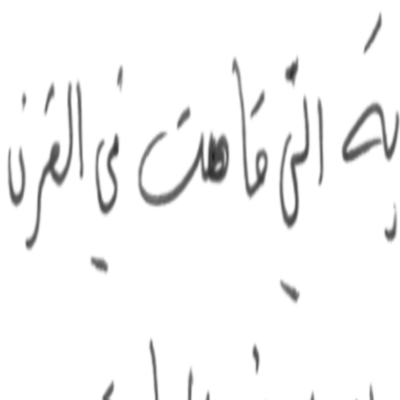 التي قامت في القرن